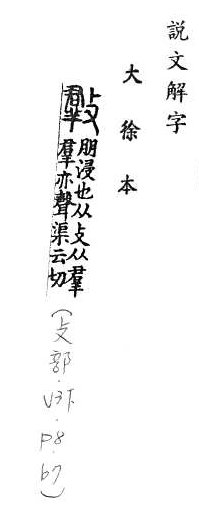 說文解字
大徐本
𣀄
朋浸也从攴从羣
羣亦聲渠云切
(攴部.V3下.P8.b7)